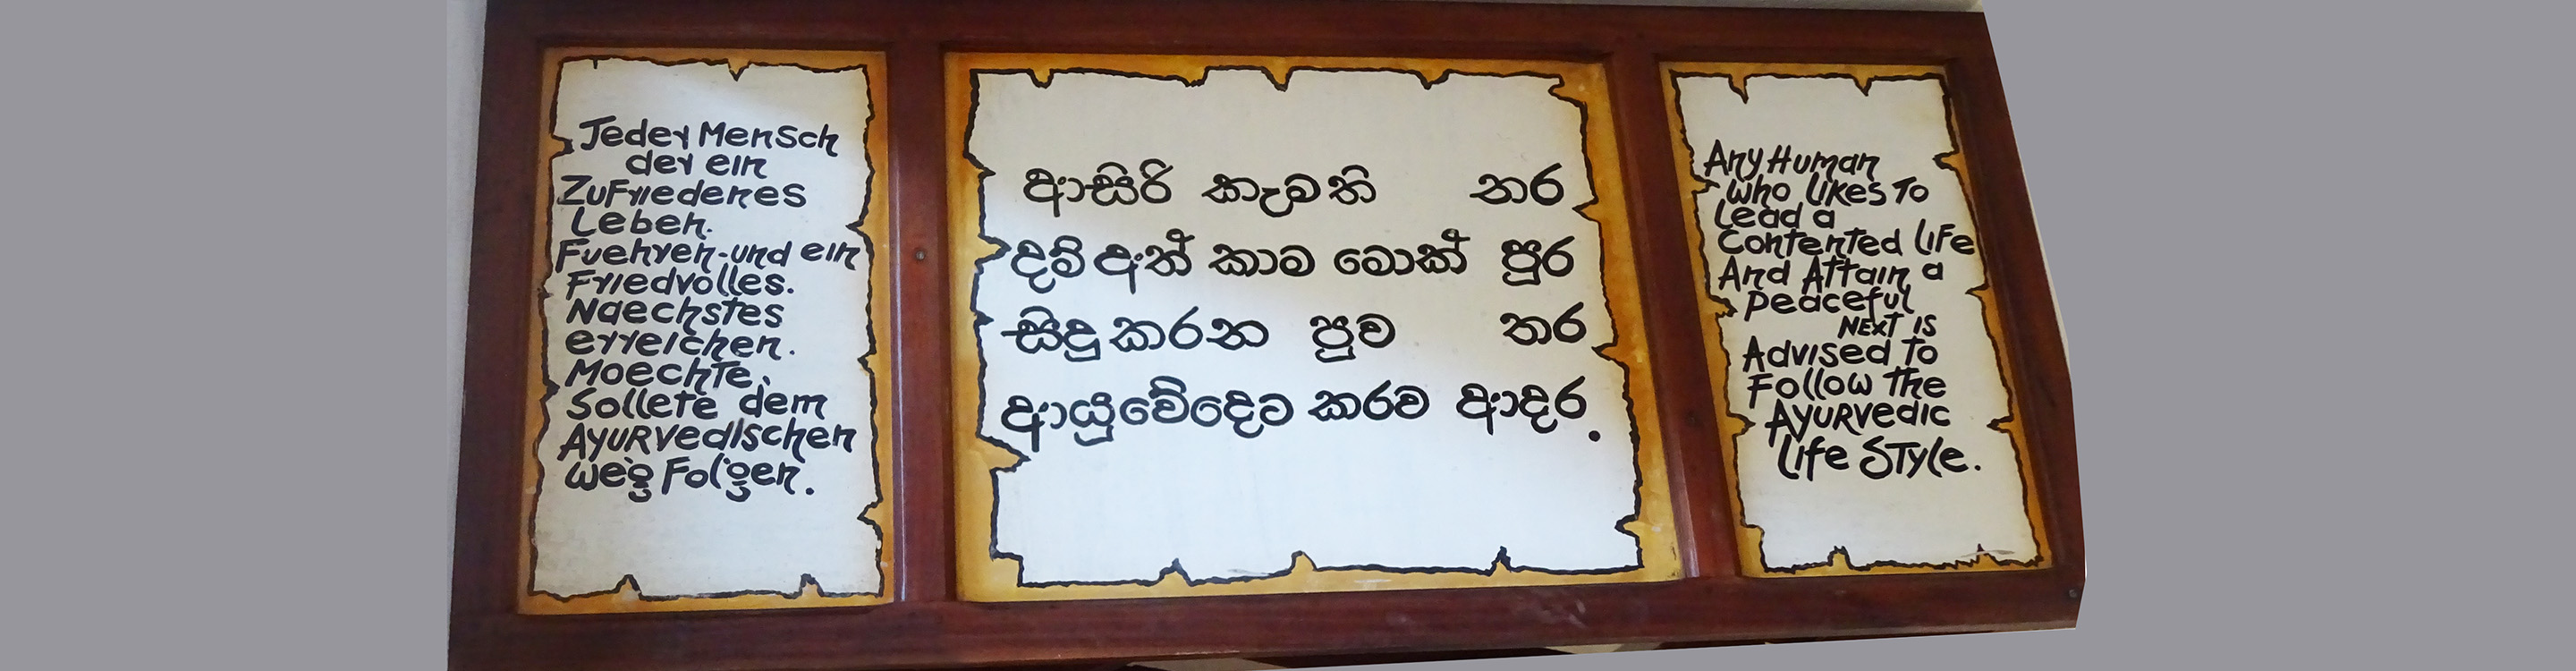 Jeder Mensch
der ein
Zufriedenes
Leben.
Fuehren-und ein
Friedvolles.
Naechstes
erreichen.
Moechte,
Sollete dem
Ayurvedischen
weg Folgen.
ආසිරි කැමති නර
දම් අත් කාම මොක් පුර
සිදු කරන පුව තර
ආයුවේදෙට කරව ආදර.
Any Human
who likes To
Lead a
Contented life
And Attain a
peaceful
NEXT IS
Advised to
Follow the
Ayurvedic
life STyle.